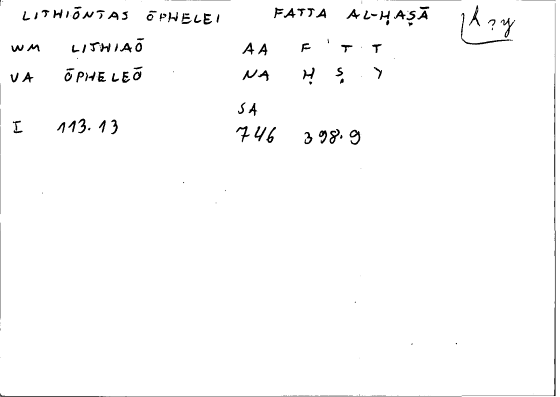 LITHIŌNTAS ŌPHELEI FATTA AL-ḤAṢĀ
WM LITHIAŌ AA F T T
VA ŌPHELEŌ NA Ḥ Ṣ Y
SA
I 113.13 746 398.9